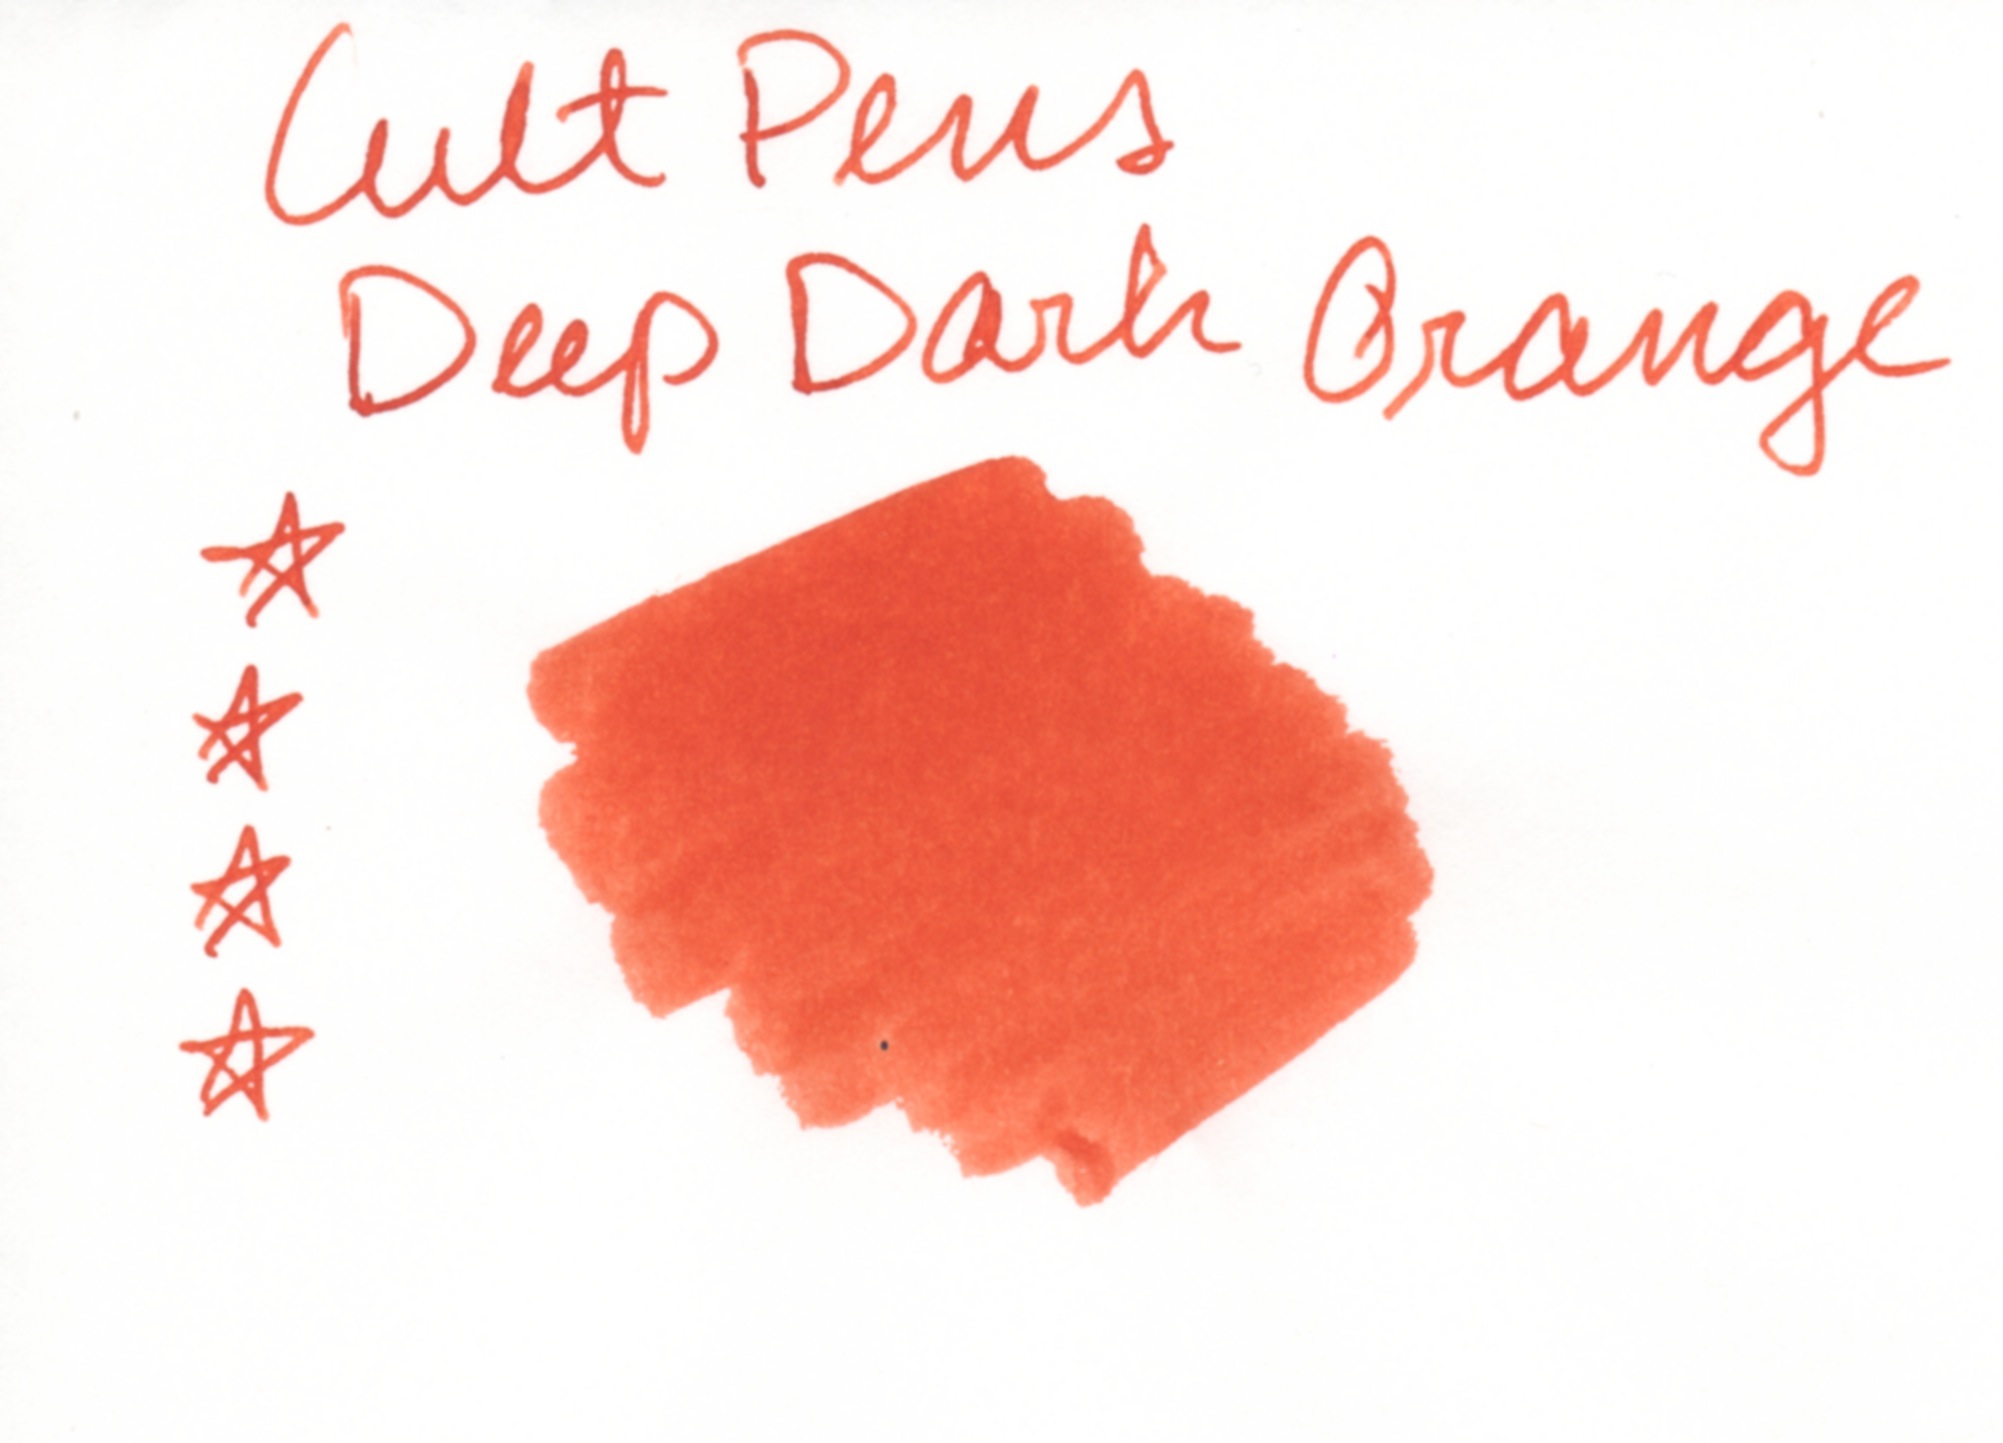 Cult Pens
Deep Dark Orange